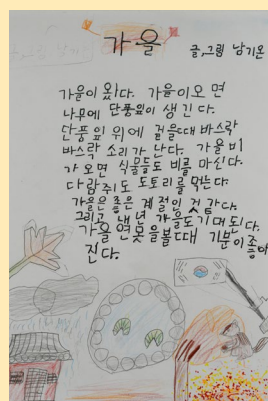 가을
글,그림 남기온
가을이 왔다. 가을이오면
나무에 단풍잎이 생긴다.
단풍잎 위에 걸을때 바스락
바스락 소리가 난다. 가을비
가 오면 식물들도 비를 마신다.
다람쥐도 도토리를 먹는다.
가을은 좋은 계절인 것 같다.
그리고 내년 가을도 기대된다.
가을 연못을볼때 기분이좋아
진다.